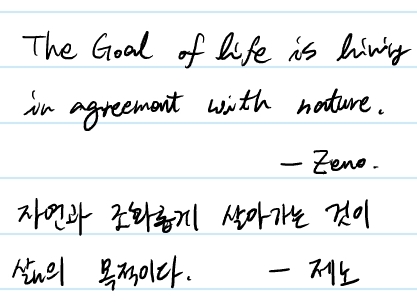 The Goal of life is living
in agreement with nature.
— Zeno.
자연과 조화롭게 살아가는 것이
삶의 목적이다. — 제노